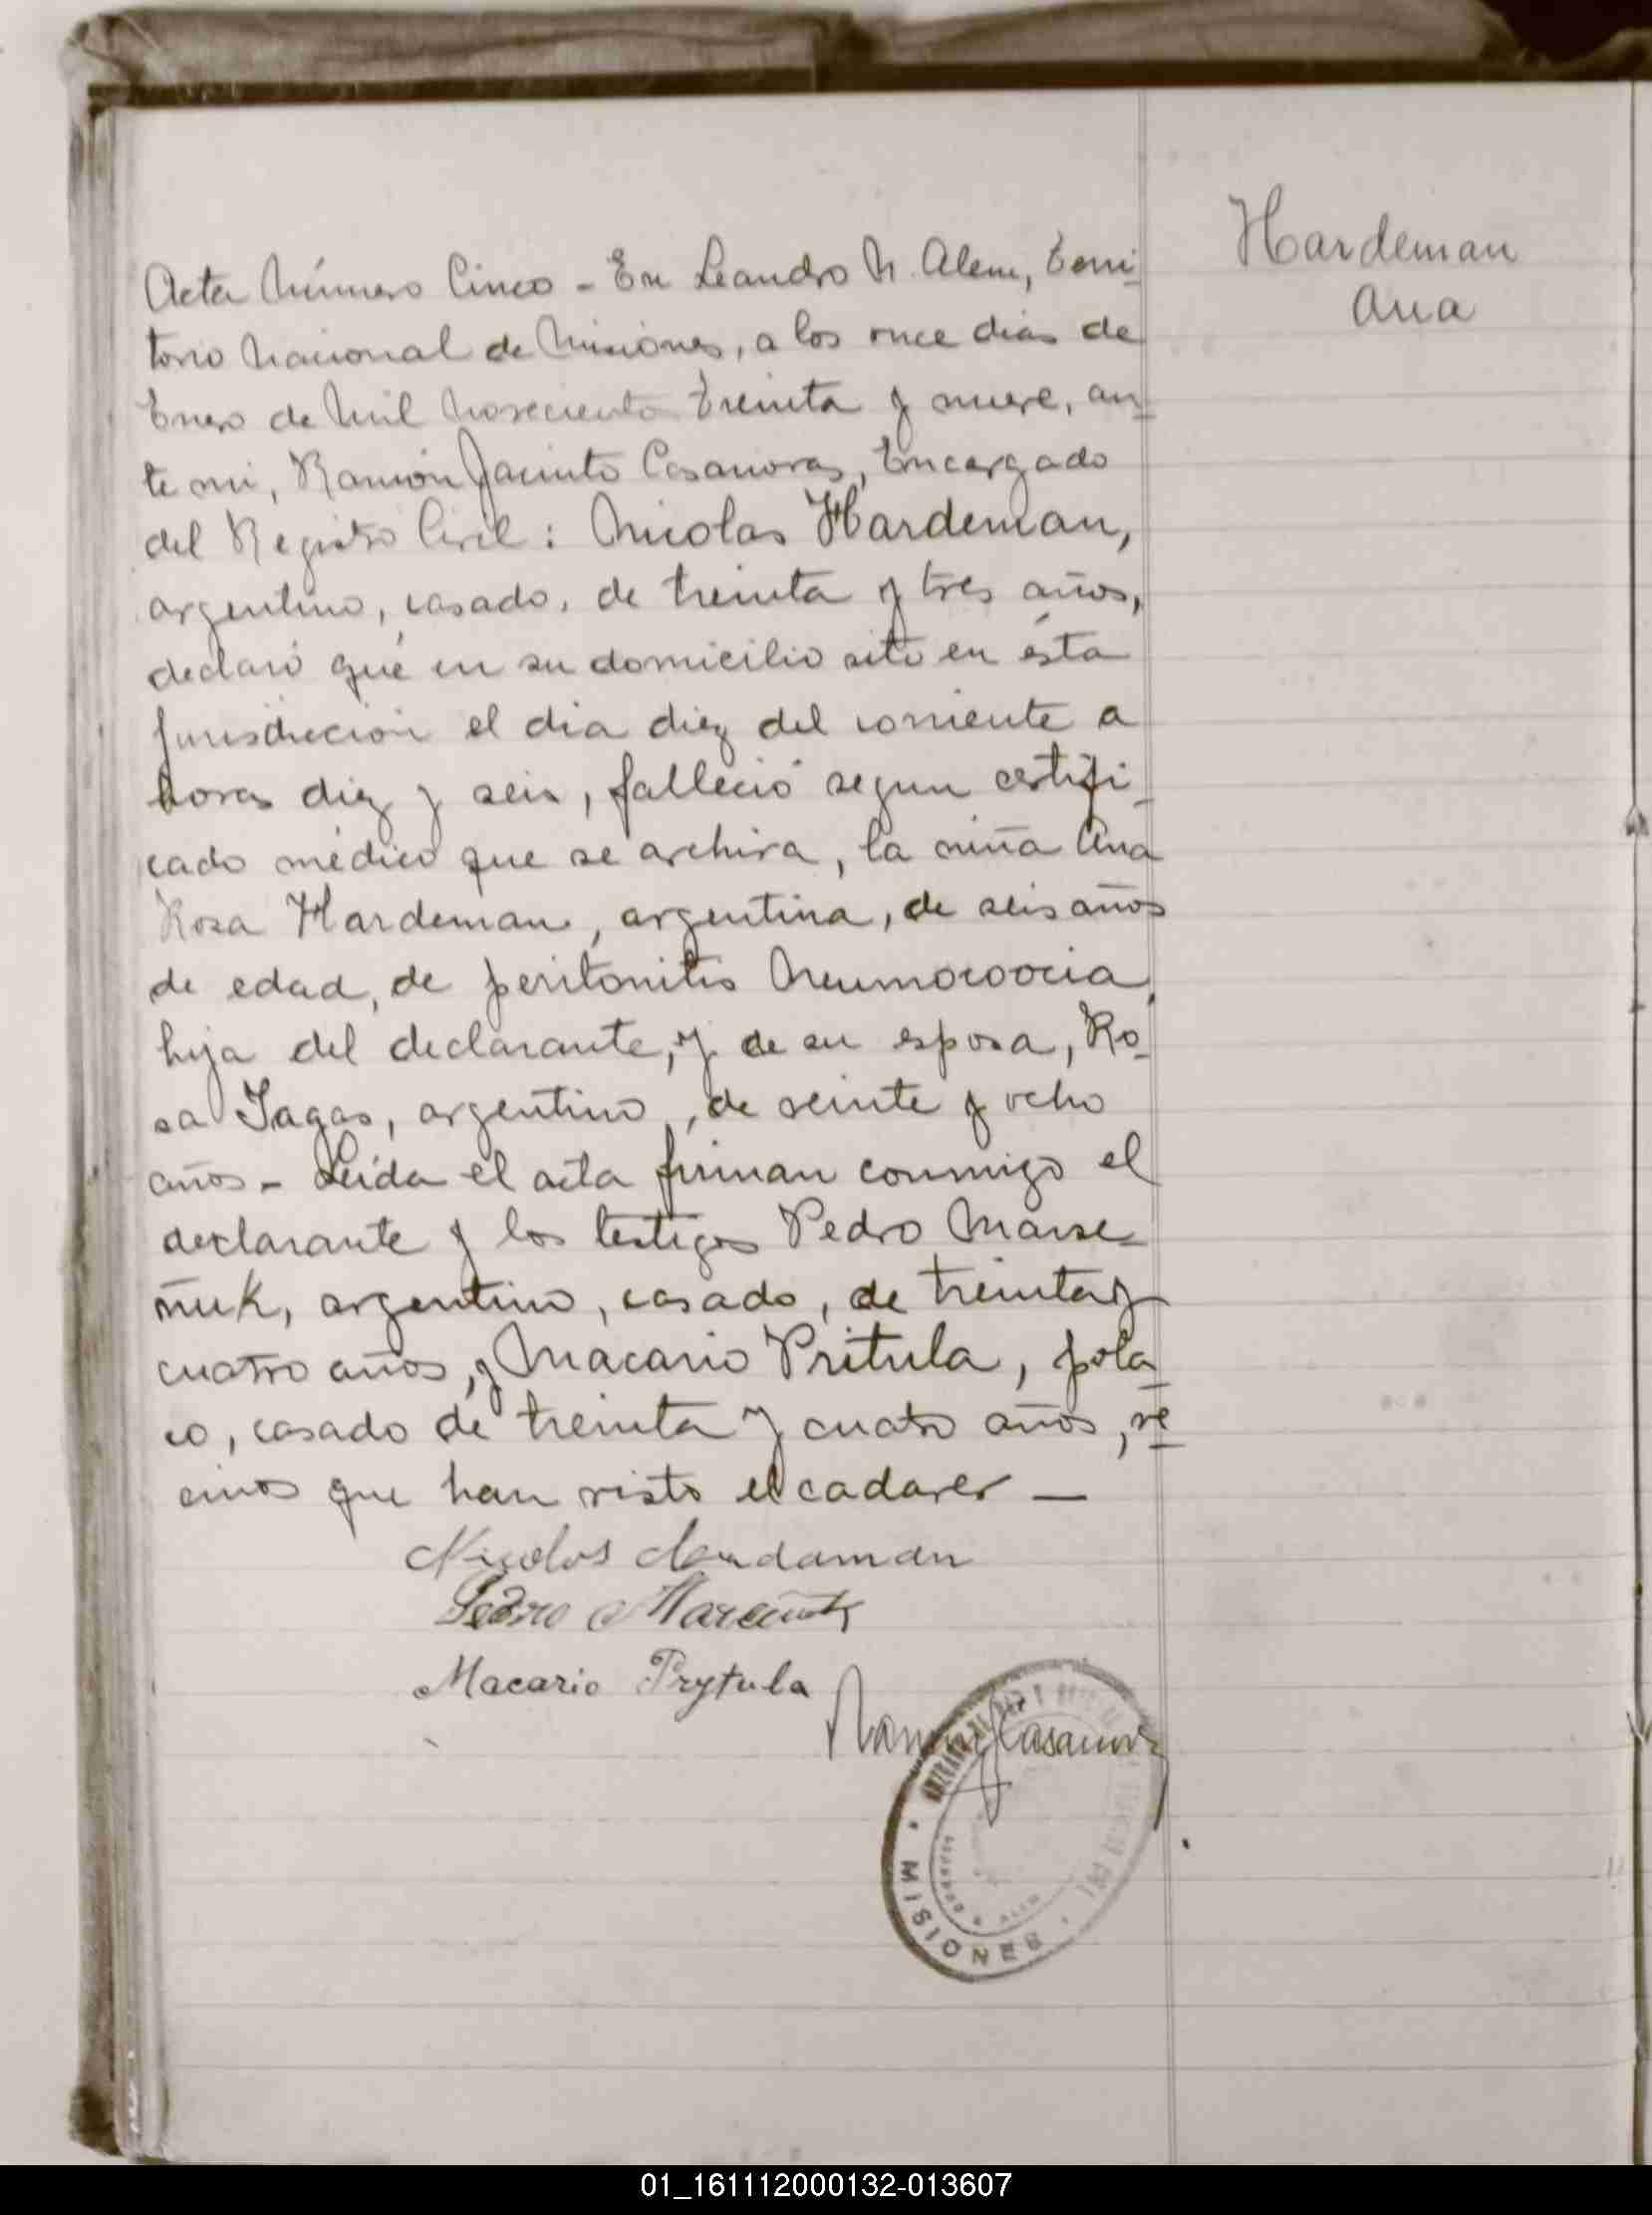 Hardeman
Ana
Acta Número Cinco - En Leandro N. Alem, Terri-
torio Nacional de Misiones, a los once dias de
Enero de Mil Novecientos Treinta y nueve, an-
te mi, Ramón Jacinto Casanovas, Encargado
del Registro Civil: Nicolas Hardeman,
argentino, casado, de treinta y tres años,
declaró que en su domicilio sito en ésta
jurisdiccion el dia diez del corriente a
horas diez y seis, falleció segun certifi-
cado médico que se archiva, la niña Ana
Rosa Hardeman, argentina, de seis años
de edad, de peritonitis Neumococcia,
hija del declarante, y de su esposa, Ro-
sa Jagas, argentino, de veinte y ocho
años - Leida el acta firman conmigo el
declarante y los testigos Pedro Marse-
ñuk, argentino, casado, de treinta y
cuatro años, y Macario Pritula, pola-
co, casado de treinta y cuatro años, ve-
cinos que han visto el cadaver —
Nicolas Hardaman
Pedro Marceñuk
Macario Prytula
Ramón J Casanovas
MISIONES
01_161112000132-013607